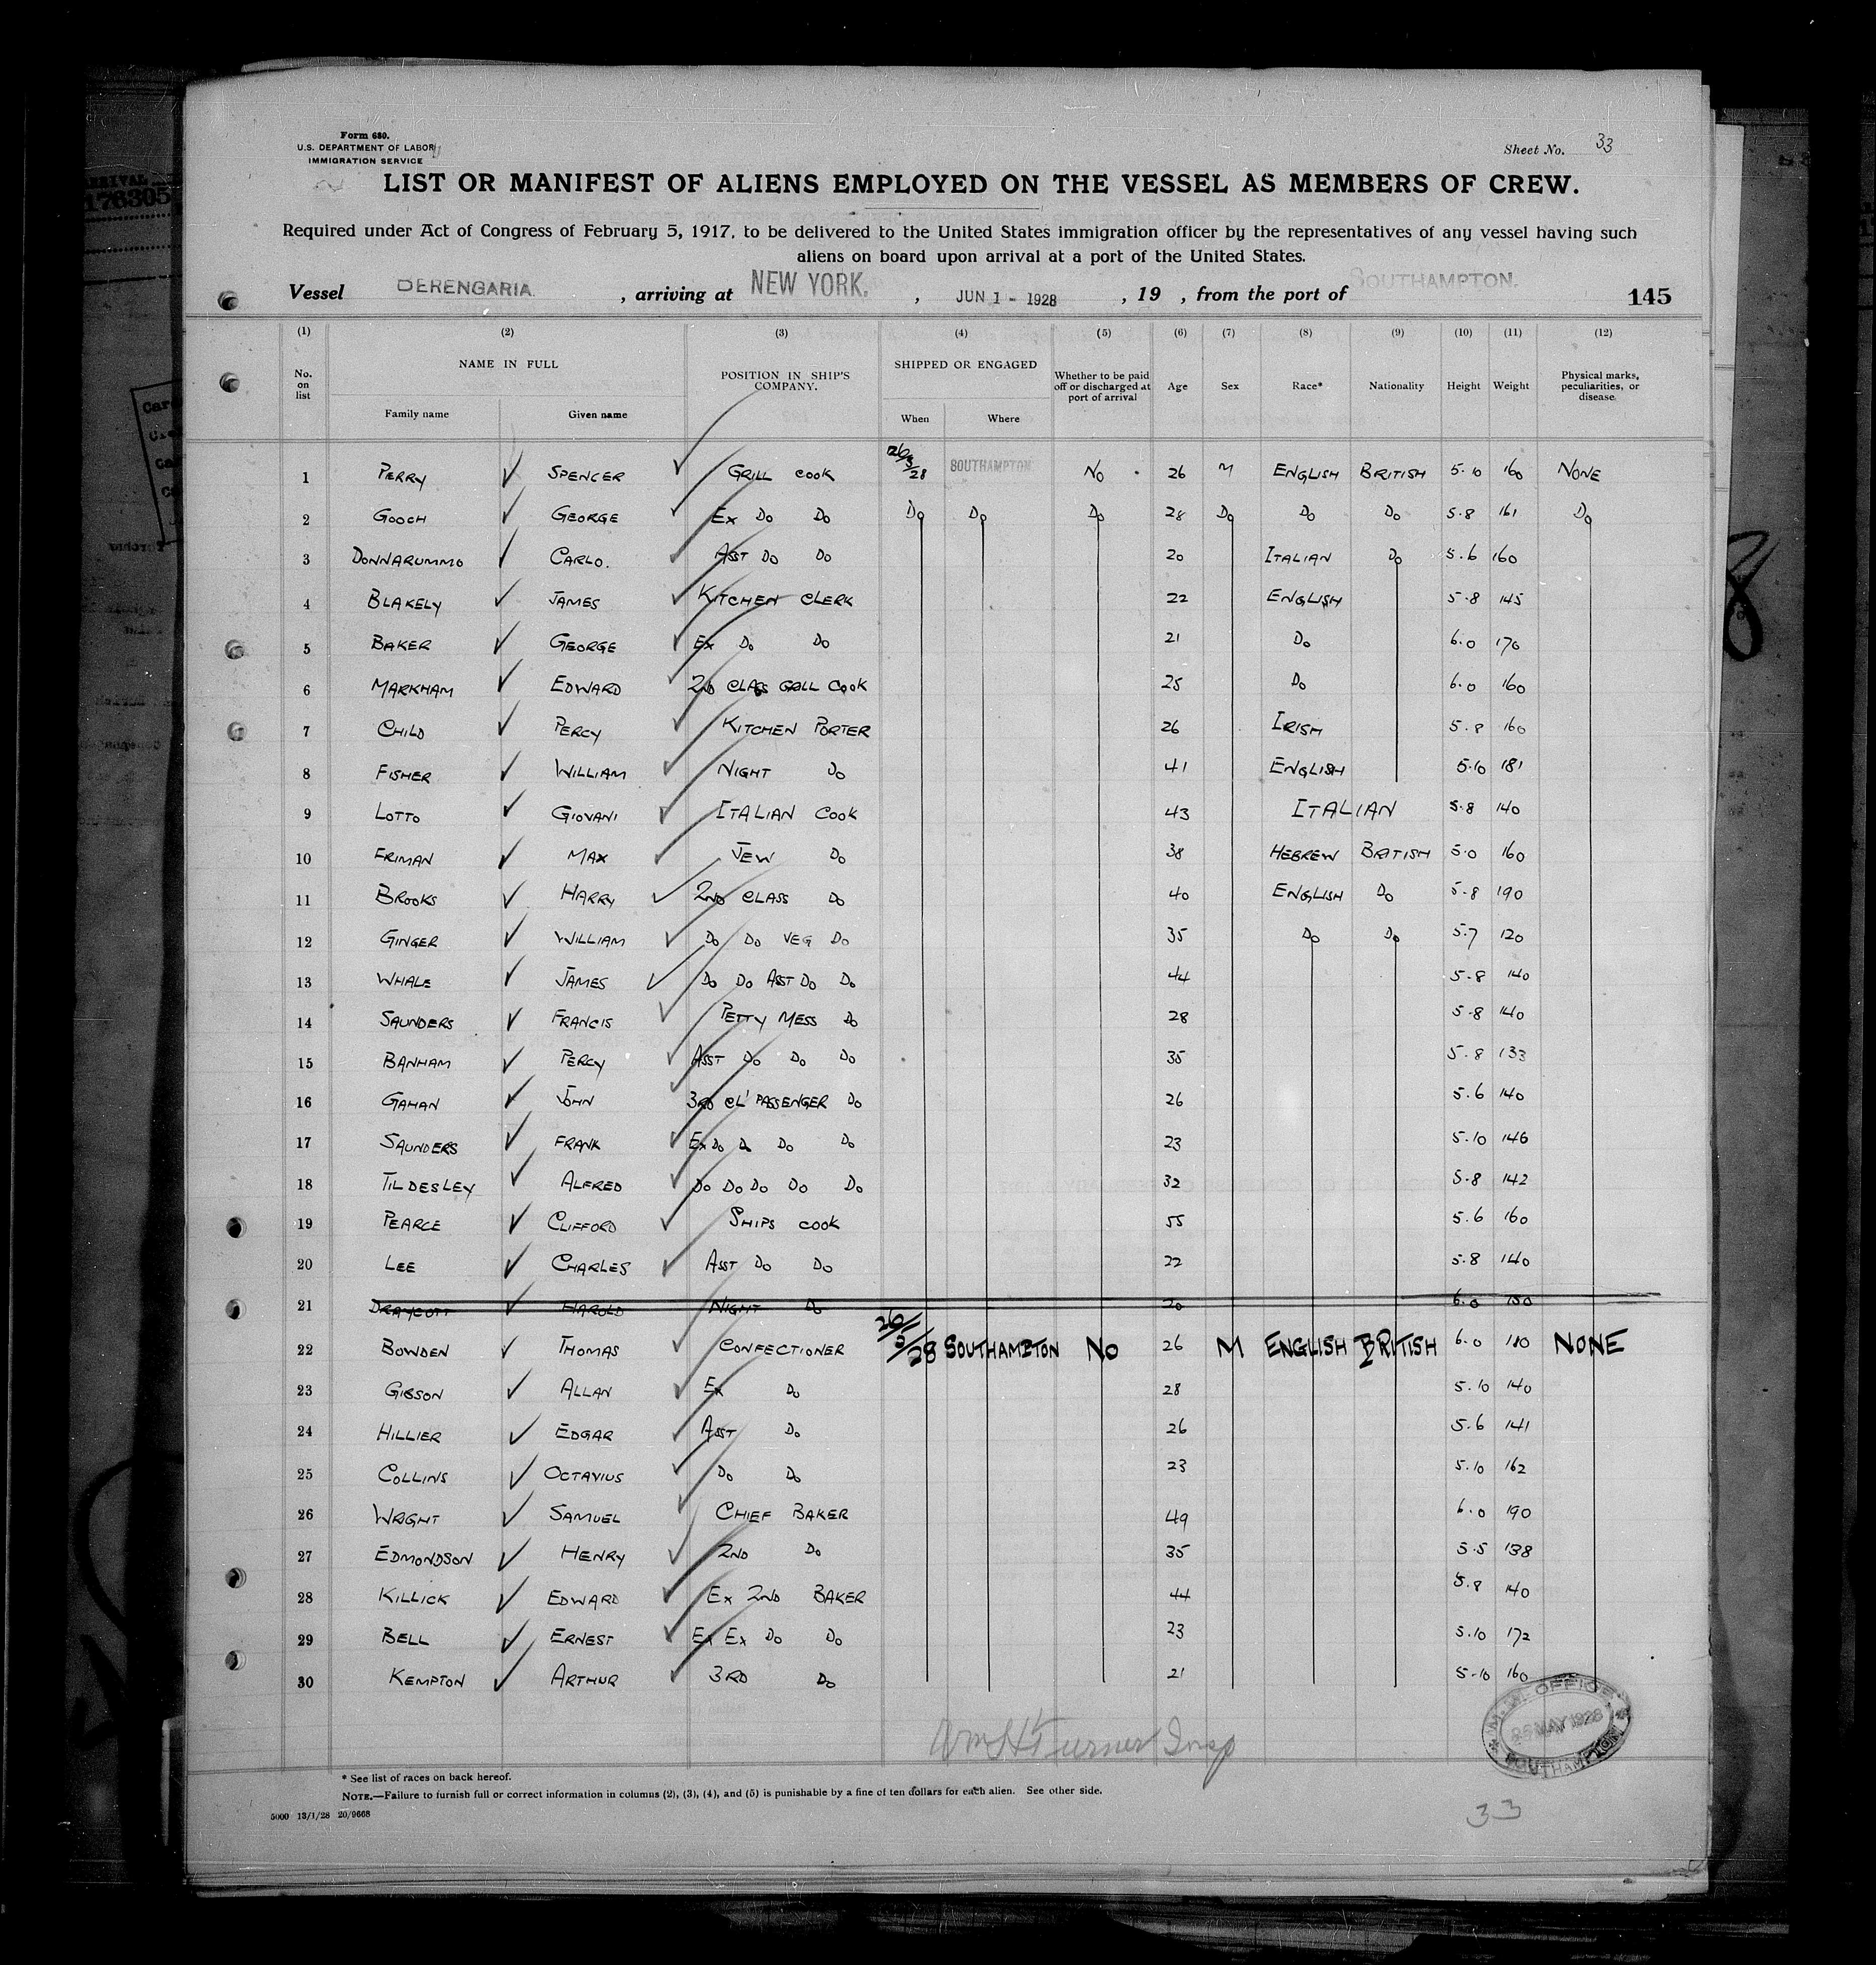 Form 680.
U.S. DEPARTMENT OF LABOR
IMMIGRATION SERVICE
Sheet No. 33
LIST OR MANIFEST OF ALIENS EMPLOYED ON THE VESSEL AS MEMBERS OF CREW.
Required under Act of Congress of February 5, 1917, to be delivered to the United States immigration officer by the representatives of any vessel having such
aliens on board upon arrival at a port of the United States.
Vessel BERENGARIA , arriving at NEW YORK. , JUN 1 - 1928 , 19 , from the port of SOUTHAMPTON. 145
(1) (2) (3) (4) (5) (6) (7) (8) (9) (10) (11) (12)
No. on list NAME IN FULL Family name Given name POSITION IN SHIP'S COMPANY. SHIPPED OR ENGAGED When Where Whether to be paid off or discharged at port of arrival Age Sex Race* Nationality Height Weight Physical marks, peculiarities, or disease
1 PERRY SPENCER GRILL COOK 26/5/28 SOUTHAMPTON NO 26 M ENGLISH BRITISH 5.10 160 NONE
2 GOOCH GEORGE EX DO DO DO DO DO 28 DO DO DO 5.8 161 DO
3 DONNARUMMO CARLO. ASST DO DO 20 ITALIAN DO 5.6 160
4 BLAKELY JAMES KITCHEN CLERK 22 ENGLISH 5.8 145
5 BAKER GEORGE EX DO DO 21 DO 6.0 170
6 MARKHAM EDWARD 2ND CLASS GRILL COOK 25 DO 6.0 160
7 CHILD PERCY KITCHEN PORTER 26 IRISH 5.8 160
8 FISHER WILLIAM NIGHT DO 41 ENGLISH 5.10 181
9 LOTTO GIOVANI ITALIAN COOK 43 ITALIAN 5.8 140
10 FRIMAN MAX JEW DO 38 HEBREW BRITISH 5.0 160
11 BROOKS HARRY 2ND CLASS DO 40 ENGLISH DO 5.8 190
12 GINGER WILLIAM DO DO VEG DO 35 DO DO 5.7 120
13 WHALE JAMES DO DO ASST DO DO 44 5.8 140
14 SAUNDERS FRANCIS PETTY MESS DO 28 5.8 140
15 BANHAM PERCY ASST DO DO DO 35 5.8 133
16 GAHAN JOHN 3RD CL' PASSENGER DO 26 5.6 140
17 SAUNDERS FRANK EX DO DO DO DO 23 5.10 146
18 TILDESLEY ALFRED DO DO DO DO DO 32 5.8 142
19 PEARCE CLIFFORD SHIPS COOK 55 5.6 160
20 LEE CHARLES ASST DO DO 22 5.8 140
21 DRAYCOTT HAROLD NIGHT DO 20 6.0 150
22 BOWDEN THOMAS CONFECTIONER 26/5/28 SOUTHAMPTON NO 26 M ENGLISH BRITISH 6.0 180 NONE
23 GIBSON ALLAN EX DO 28 5.10 140
24 HILLIER EDGAR ASST DO 26 5.6 141
25 COLLINS OCTAVIUS DO DO 23 5.10 162
26 WRIGHT SAMUEL CHIEF BAKER 49 6.0 190
27 EDMONDSON HENRY 2ND DO 35 5.5 138
28 KILLICK EDWARD EX 2ND BAKER 44 5.8 140
29 BELL ERNEST EX EX DO DO 23 5.10 172
30 KEMPTON ARTHUR 3RD DO 21 5.10 160
Wm H Turner Insp
M. M. OFFICE
26 MAY 1928
SOUTHAMPTON
* See list of races on back hereof.
NOTE.—Failure to furnish full or correct information in columns (2), (3), (4), and (5) is punishable by a fine of ten dollars for each alien. See other side.
5000 13/1/28 20/9668
33